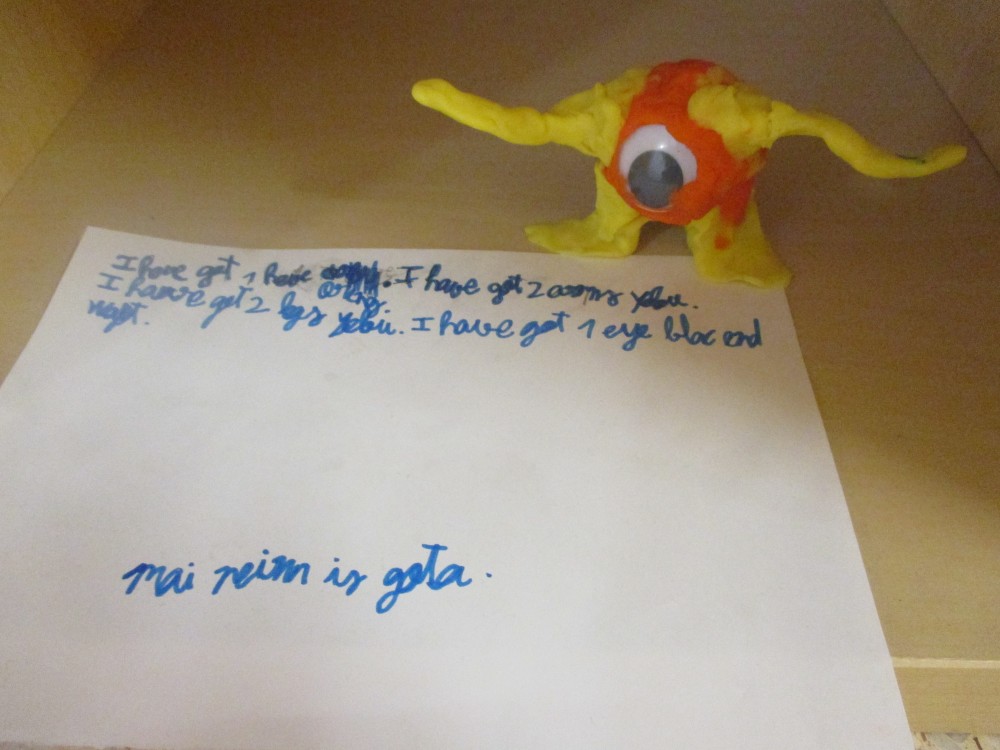 I have got 1 have. I have got 2 arms yelou.
I have got 2 legs yelou. I have got 1 eye blac end
mai neim is gota.